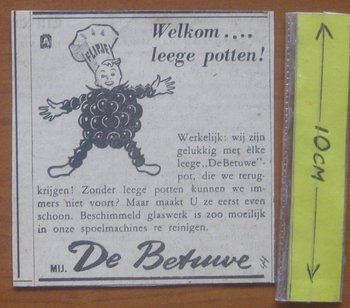 A
FLIPJE
Welkom....
leege potten!
Werkelijk: wij zijn
gelukkig met èlke
leege „De Betuwe"-
pot, die we terug-
krijgen! Zonder leege potten kunnen we im-
mers niet voort? Maar maakt U ze eerst even
schoon. Beschimmeld glaswerk is zoo moeilijk
in onze spoelmachines te reinigen.
MIJ. De Betuwe
10CM